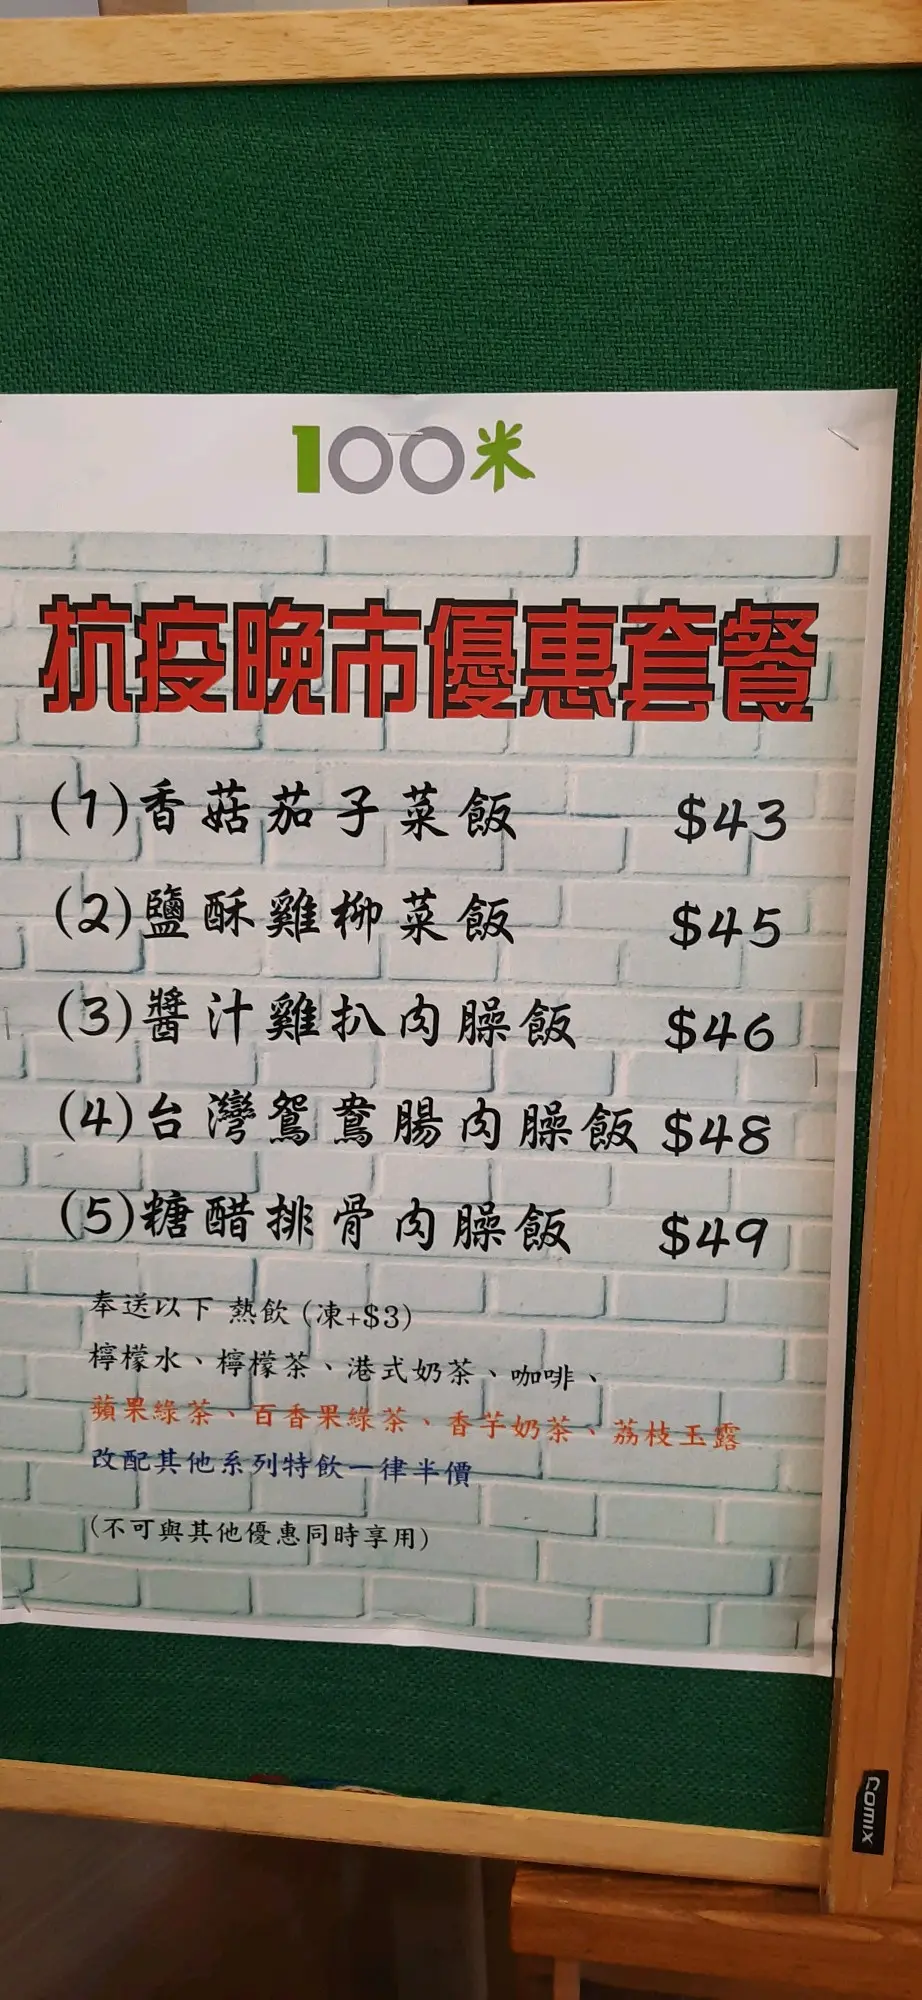 100米
抗疫晚市優惠套餐
(1)香菇茄子菜飯 $43
(2)鹽酥雞柳菜飯 $45
(3)醬汁雞扒肉臊飯 $46
(4)台灣鴛鴦腸肉臊飯 $48
(5)糖醋排骨肉臊飯 $49
奉送以下 熱飲 (凍+$3)
檸檬水、檸檬茶、港式奶茶、咖啡、
蘋果綠茶、百香果綠茶、香芋奶茶、荔枝玉露
改配其他系列特飲一律半價
(不可與其他優惠同時享用)
Comix